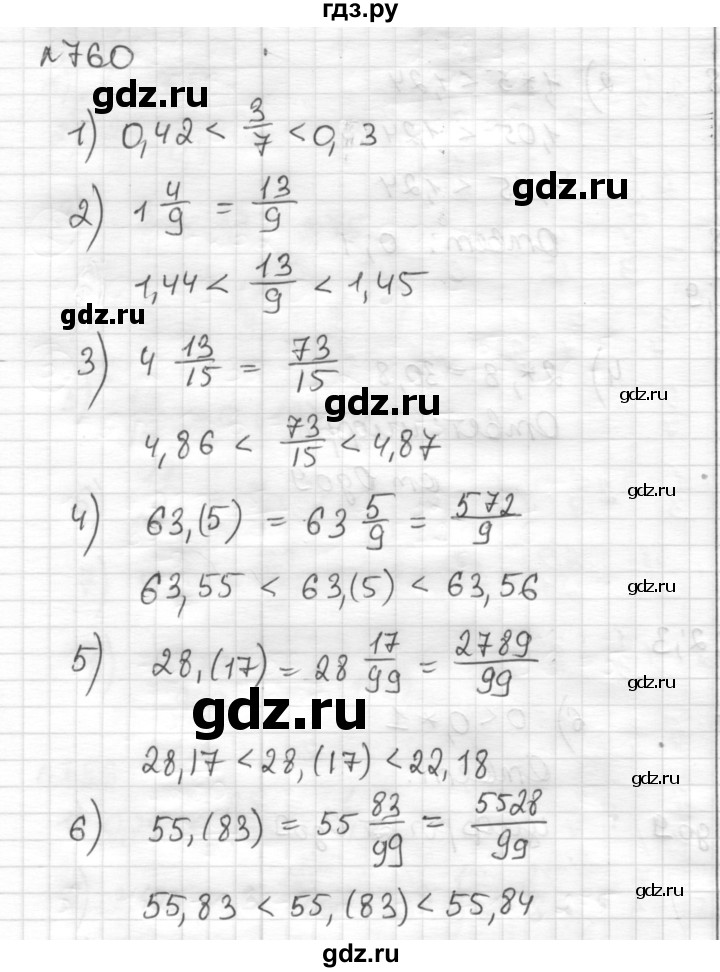 гдз.ру
№760
gdz.ru
1) 0,42 < 3/7 < 0,3
gdz.ru
2) 1 4/9 = 13/9
1,44 < 13/9 < 1,45
gdz.ru
3) 4 13/15 = 73/15
gdz.ru
gdz.ru
4,86 < 73/15 < 4,87
gdz.ru
4) 63,(5) = 63 5/9 = 572/9
63,55 < 63,(5) < 63,56
gdz.ru
5) 28,(17) = 28 17/99 = 2789/99
gdz.ru
gdz.ru
28,17 < 28,(17) < 22,18
gdz.ru
6) 55,(83) = 55 83/99 = 5528/99
gdz.ru
55,83 < 55,(83) < 55,84
gdz.ru